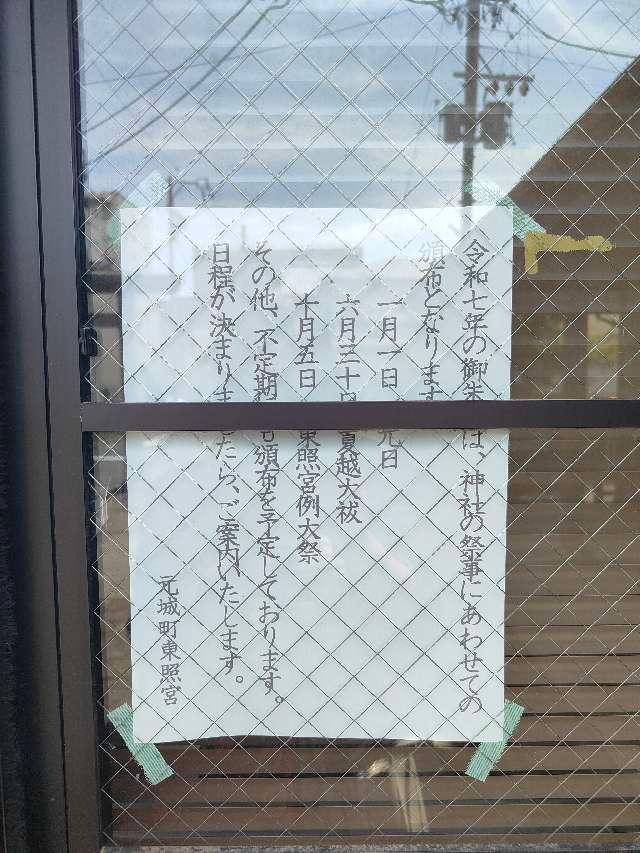 令和七年の御朱は、神社の祭事にあわせての
頒布となります
一月一日 元日
六月三十日 夏越大祓
十月五日 東照宮例大祭
その他、不定期にも頒布を予定しております。
日程が決まりましたら、ご案内いたします。
元城町東照宮